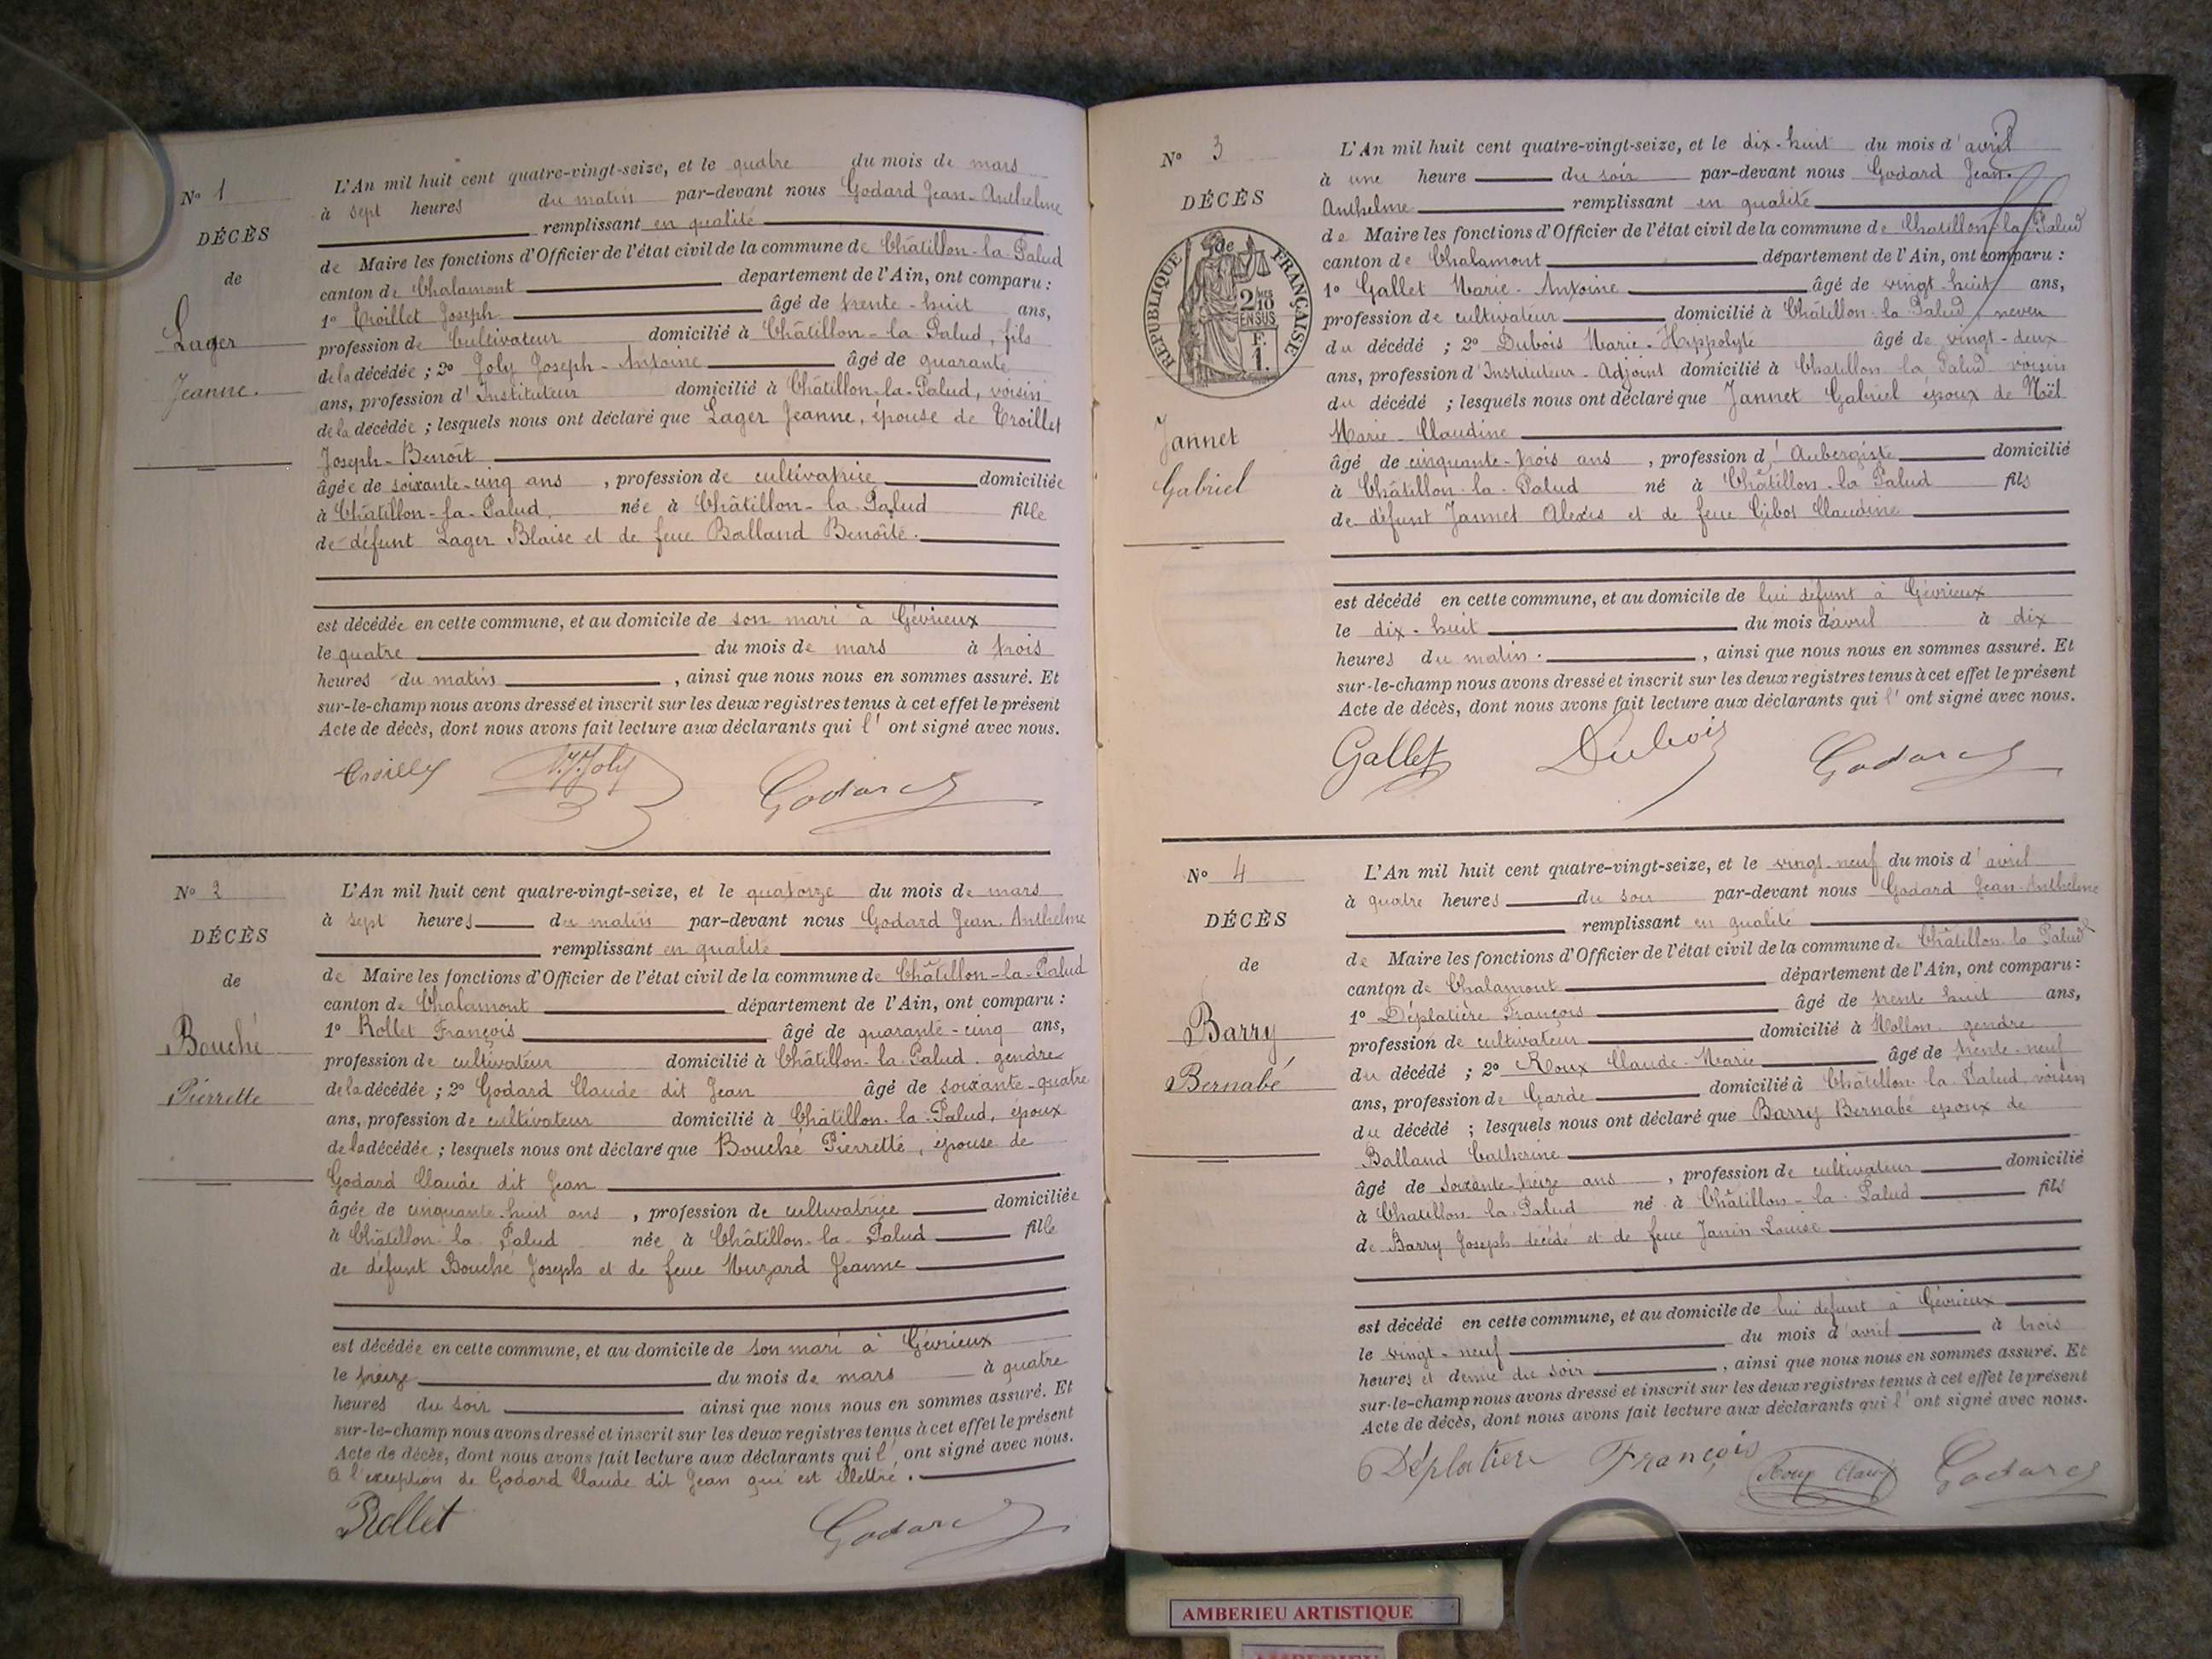 N° 1
DÉCÈS
de
Lager
Jeanne.
L'An mil huit cent quatre-vingt-seize, et le quatre du mois de mars
à sept heures du matin par-devant nous Godard Jean-Anthelme
remplissant en qualité
de Maire les fonctions d'Officier de l'état civil de la commune de Châtillon-la-Palud
canton de Chalamont département de l'Ain, ont comparu :
1° Troillet Joseph âgé de trente-huit ans,
profession de Cultivateur domicilié à Châtillon-la-Palud, fils
de la décédée ; 2° Joly Joseph-Antoine âgé de quarante
ans, profession d'Instituteur domicilié à Châtillon-la-Palud, voisin
de la décédée ; lesquels nous ont déclaré que Lager Jeanne, épouse de Troillet
Joseph-Benoît
âgée de soixante-cinq ans, profession de cultivatrice domiciliée
à Châtillon-la-Palud, née à Châtillon-la-Palud fille
de défunt Lager Blaise et de feue Balland Benoîte.
est décédée en cette commune, et au domicile de son mari à Gévrieux
le quatre du mois de mars à trois
heures du matin, ainsi que nous nous en sommes assuré. Et
sur-le-champ nous avons dressé et inscrit sur les deux registres tenus à cet effet le présent
Acte de décès, dont nous avons fait lecture aux déclarants qui l'ont signé avec nous.
Joly Godard
N° 2
DÉCÈS
de
Bouché
Pierrette
L'An mil huit cent quatre-vingt-seize, et le quatorze du mois de mars
à sept heures du matin par-devant nous Godard Jean-Anthelme
remplissant en qualité
de Maire les fonctions d'Officier de l'état civil de la commune de Châtillon-la-Palud
canton de Chalamont département de l'Ain, ont comparu :
1° Rollet François âgé de quarante-cinq ans,
profession de cultivateur domicilié à Châtillon-la-Palud. gendre
de la décédée ; 2° Godard Claude dit Jean âgé de soixante-quatre
ans, profession de cultivateur domicilié à Châtillon-la-Palud, époux
de la décédée ; lesquels nous ont déclaré que Bouché Pierrette, épouse de
Godard Claude dit Jean
âgée de cinquante-huit ans, profession de cultivatrice domiciliée
à Châtillon-la-Palud née à Châtillon-la-Palud fille
de défunt Bouché Joseph et de feue Muzard Jeanne
est décédée en cette commune, et au domicile de son mari à Gévrieux
le treize du mois de mars à quatre
heures du soir ainsi que nous nous en sommes assuré. Et
sur-le-champ nous avons dressé et inscrit sur les deux registres tenus à cet effet le présent
Acte de décès, dont nous avons fait lecture aux déclarants qui l'ont signé avec nous.
à l'exception de Godard Claude dit Jean qui est illettré.
Rollet Godard
N° 3
DÉCÈS
de
RÉPUBLIQUE FRANÇAISE
2/10
EN SUS
F.
1.
Jannet
Gabriel
L'An mil huit cent quatre-vingt-seize, et le dix-huit du mois d'avril
à une heure du soir par-devant nous Godard Jean-
Anthelme remplissant en qualité
de Maire les fonctions d'Officier de l'état civil de la commune de Châtillon-la-Palud
canton de Chalamont département de l'Ain, ont comparu :
1° Gallet Marie-Antoine âgé de vingt-huit ans,
profession de cultivateur domicilié à Châtillon-la-Palud, neveu
du décédé ; 2° Dubois Marie-Hippolyte âgé de vingt-deux
ans, profession d'Instituteur-Adjoint domicilié à Chatillon-la-Palud voisin
du décédé ; lesquels nous ont déclaré que Jannet Gabriel époux de Noël
Marie-Claudine
âgé de cinquante-trois ans, profession d'Aubergiste domicilié
à Châtillon-la-Palud né à Châtillon-la-Palud fils
de défunt Jannet Alexis et de feue Gibot Claudine
est décédé en cette commune, et au domicile de lui défunt à Gévrieux
le dix-huit du mois d'avril à dix
heures du matin., ainsi que nous nous en sommes assuré. Et
sur-le-champ nous avons dressé et inscrit sur les deux registres tenus à cet effet le présent
Acte de décès, dont nous avons fait lecture aux déclarants qui l'ont signé avec nous.
Gallet Dubois Godard
N° 4
DÉCÈS
de
Barry
Bernabé
L'An mil huit cent quatre-vingt-seize, et le vingt-neuf du mois d'avril
à quatre heures du soir par-devant nous Godard Jean-Anthelme
remplissant en qualité
de Maire les fonctions d'Officier de l'état civil de la commune de Châtillon-la-Palud
canton de Chalamont département de l'Ain, ont comparu :
1° Déplatière François âgé de trente huit ans,
profession de cultivateur domicilié à Mollon. gendre
du décédé ; 2° Roux Claude-Marie âgé de trente-neuf
ans, profession de Garde domicilié à Châtillon-la-Palud, voisin
du décédé ; lesquels nous ont déclaré que Barry Bernabé époux de
Balland Catherine
âgé de soixante-treize ans, profession de cultivateur domicilié
à Chatillon-la-Palud né à Châtillon-la-Palud fils
de Barry Joseph décédé et de feue Janin Louise
est décédé en cette commune, et au domicile de lui défunt à Gévrieux
le vingt-neuf du mois d'avril à trois
heures et demie du soir, ainsi que nous nous en sommes assuré. Et
sur-le-champ nous avons dressé et inscrit sur les deux registres tenus à cet effet le présent
Acte de décès, dont nous avons fait lecture aux déclarants qui l'ont signé avec nous.
Déplatière François Roux Claude Godard
AMBERIEU ARTISTIQUE
AMBERIEU